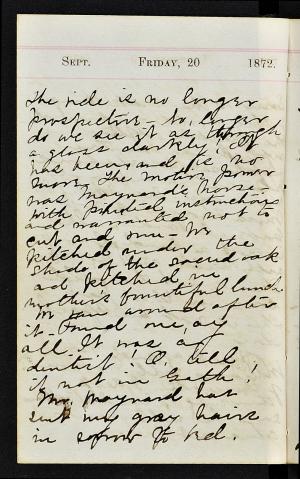 Sept. Friday, 20 1872.
The ride is no longer
prospective - no longer
do we see it as through
a glass darkly! It
has been, and is no
more. The motive power
was Maynard's horse -
with printed instructions
and warranted not to
cut and run - We
pitched under the
shade of the sacred oak
and pitched in
mother's bountiful lunch
We ran around after
it - found one, of
all. It was a
dentist! O, tell
it not in Gath!
Mrs. Maynard has
sent my gray hairs
in sorrow to bed.